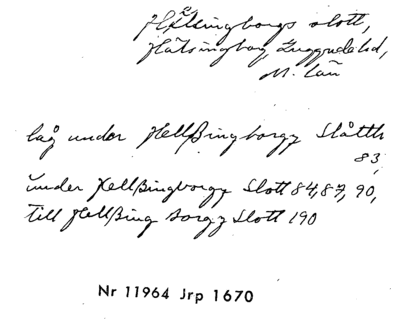 Hälsingborgs slott,
Hälsingborg, Luggude hd,
M. län
låg under Hellßingborgz Slåtth
83,
under Hellßingborgz Slott 84, 87, 90,
till Hellßing borgz Slott 190
Nr 11964 Jrp 1670